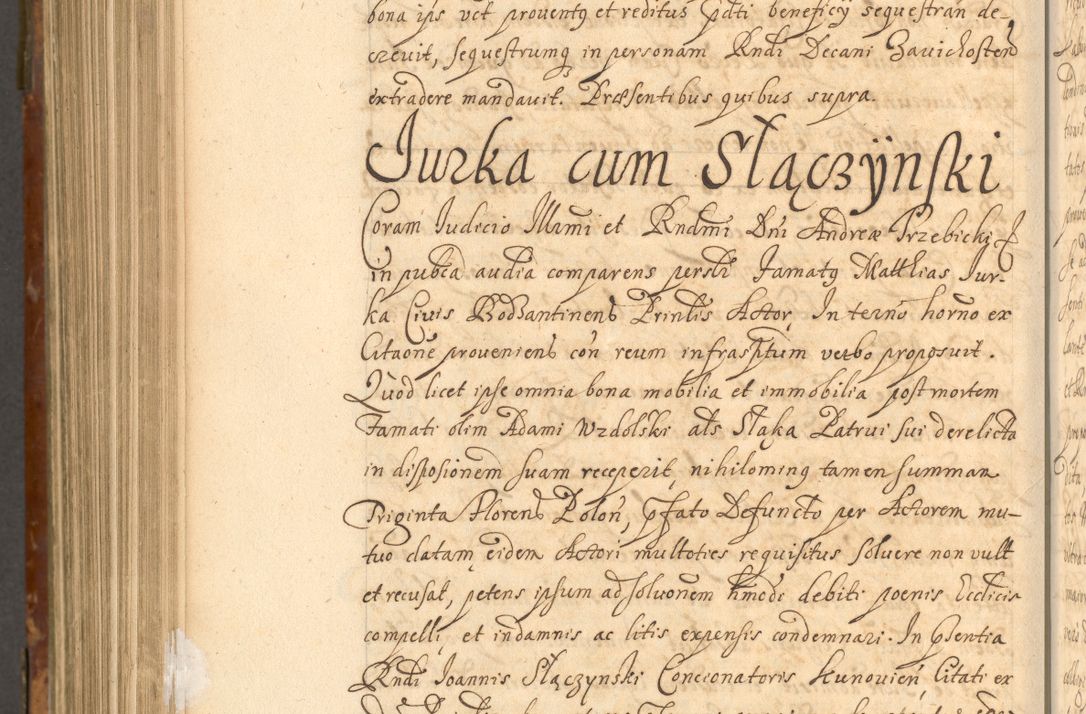 bona ips vct proventq et reditus pdti beneficÿ sequestran de-
crevit, sequestrumq in personam Rndi Decani Zavichosten
extradere mandavit. Præsentibus quibus supra.
Jurka cum Słączÿnski
Coram Judicio Illmi et Rndmi Dni Andreæ Trzebicki
in pubca audia comparens persli Famatq Matthias Jur-
ka Civis Bodzantinens Prinlis Actor, In termo horno ex
Citaone proveniens con reum infrasptum verbo proposuit.
Quod licet ipse omnia bona mobilia et immobilia post mortem
Famati olim Adami Wzdolski als Słąka Patrui sui derelicta
in disposionem suam receperit, nihilominq tamen summam
Triginta Florens Polon, pfato Defuncto per Actorem mu-
tuo datam eidem Actori multoties requisitus solvere non vult
et recusat, petens ipsum ad soluonem hmodi debiti poenis Ecclicis
compelli, et indamnis ac litis expensis condemnari. In psentia
Rndi Joannis Słączynski Concionatoris Kunovien Citati ex